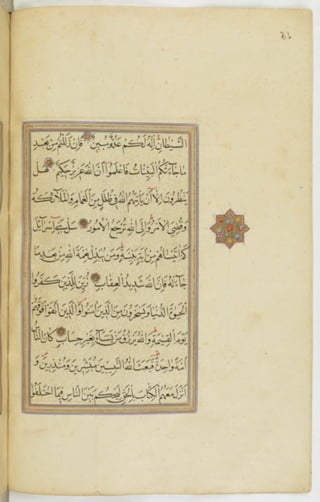 الشَّيْطَانِ إِنَّهُ لَكُمْ عَدُوٌّ مُبِينٌ فَإِنْ زَلَلْتُمْ مِنْ بَعْدِ
مَا جَاءَتْكُمُ الْبَيِّنَاتُ فَاعْلَمُوا أَنَّ اللَّهَ عَزِيزٌ حَكِيمٌ هَلْ
يَنْظُرُونَ إِلَّا أَنْ يَأْتِيَهُمُ اللَّهُ فِي ظُلَلٍ مِنَ الْغَمَامِ وَالْمَلَائِكَةُ
وَقُضِيَ الْأَمْرُ وَإِلَى اللَّهِ تُرْجَعُ الْأُمُورُ سَلْ بَنِي إِسْرَائِيلَ
كَمْ آتَيْنَاهُمْ مِنْ آيَةٍ بَيِّنَةٍ وَمَنْ يُبَدِّلْ نِعْمَةَ اللَّهِ مِنْ بَعْدِ مَا
جَاءَتْهُ فَإِنَّ اللَّهَ شَدِيدُ الْعِقَابِ زُيِّنَ لِلَّذِينَ كَفَرُوا
الْحَيَوةُ الدُّنْيَا وَيَسْخَرُونَ مِنَ الَّذِينَ آمَنُوا وَالَّذِينَ اتَّقَوْا فَوْقَهُمْ
يَوْمَ الْقِيمَةِ وَاللَّهُ يَرْزُقُ مَنْ يَشَاءُ بِغَيْرِ حِسَابٍ كَانَ النَّاسُ
أُمَّةً وَاحِدَةً فَبَعَثَ اللَّهُ النَّبِيِّينَ مُبَشِّرِينَ وَمُنْذِرِينَ وَ
أَنْزَلَ مَعَهُمُ الْكِتَابَ بِالْحَقِّ لِيَحْكُمَ بَيْنَ النَّاسِ فِيمَا اخْتَلَفُوا